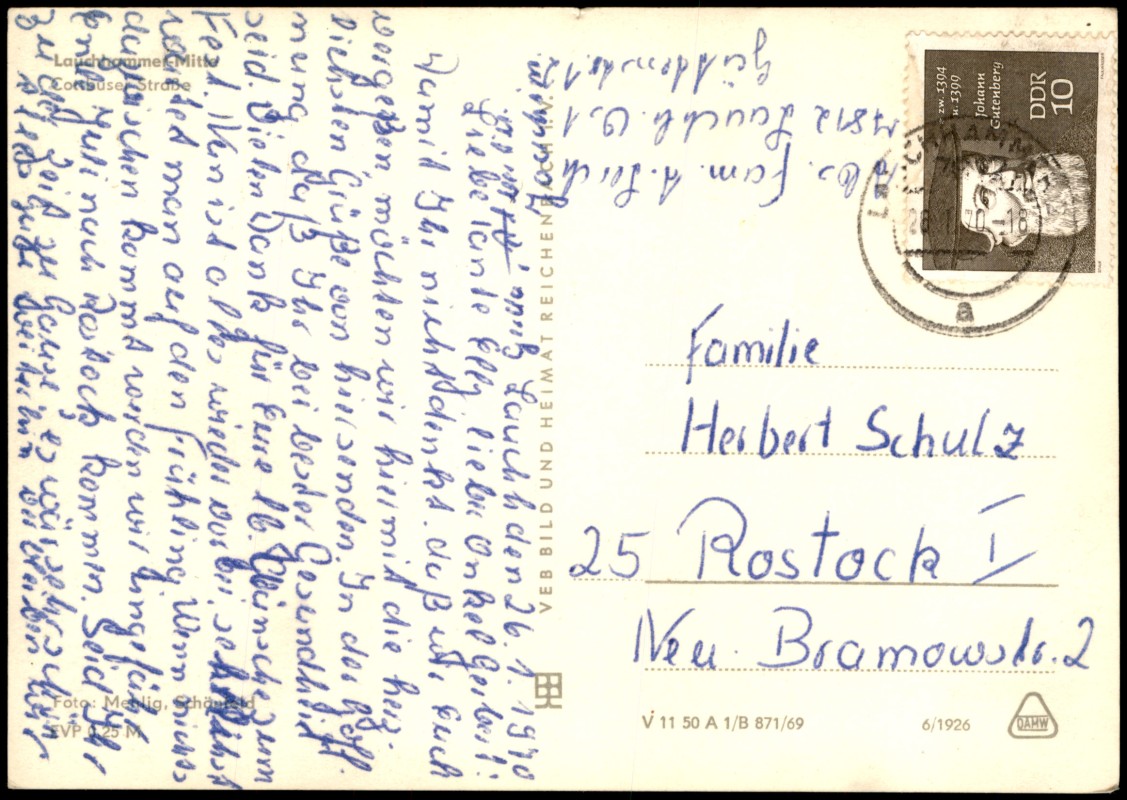 Lauchhammer-Mitte
Cottbuser Straße
Lauchh. den 26. 1. 1970
Liebe Tante Elly, lieber Onkel Herbert!
Damit Ihr nicht denkt, daß wir Euch
vergessen möchten wir hiermit die herz-
lichsten Grüße von hier senden. In der Hoff-
nung, daß Ihr bei bester Gesundheit
seid. Vielen Dank für Eure lb. Wünsche zum
Fest. Nun ist alles wieder vorbei, jetzt
wartet man auf den Frühling. Wenn nichts
dazwischen kommt werden wir ungefähr
Juli nach Rostock kommen. Seid Ihr
zu der Zeit zu Hause, es wäre sehr schön
Abs. Fam. A.
7812 Lauchh. O. 1
VEB BILD UND HEIMAT REICHENBACH I. V.
DDR
10
Johann
Gutenberg
zw. 1394
u. 1399
LAUCHHAMMER
78
-18
a
Familie
Herbert Schulz
25 Rostock I
Neu Bramowstr. 2
Foto: Mehlig, Schönfeld
EVP 0,25 M
V 11 50 A 1/B 871/69
6/1926
DAMW